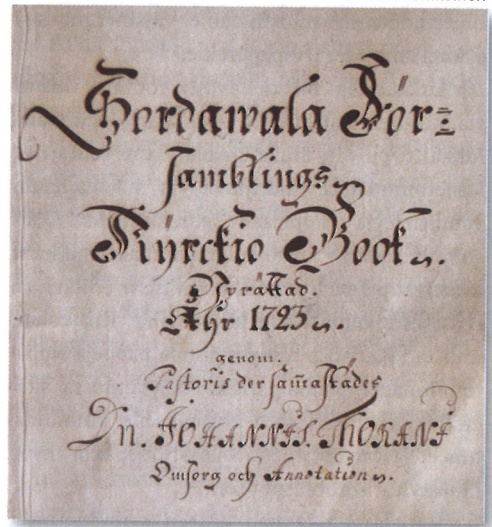 Sordawala För=
samblings
Kÿrckio Book.
Upprättad.
Åhr 1723.
genom.
Pastoris der sam̃astädes
Dn. JOHANNIS THORANI
Omsorg och Annotation.